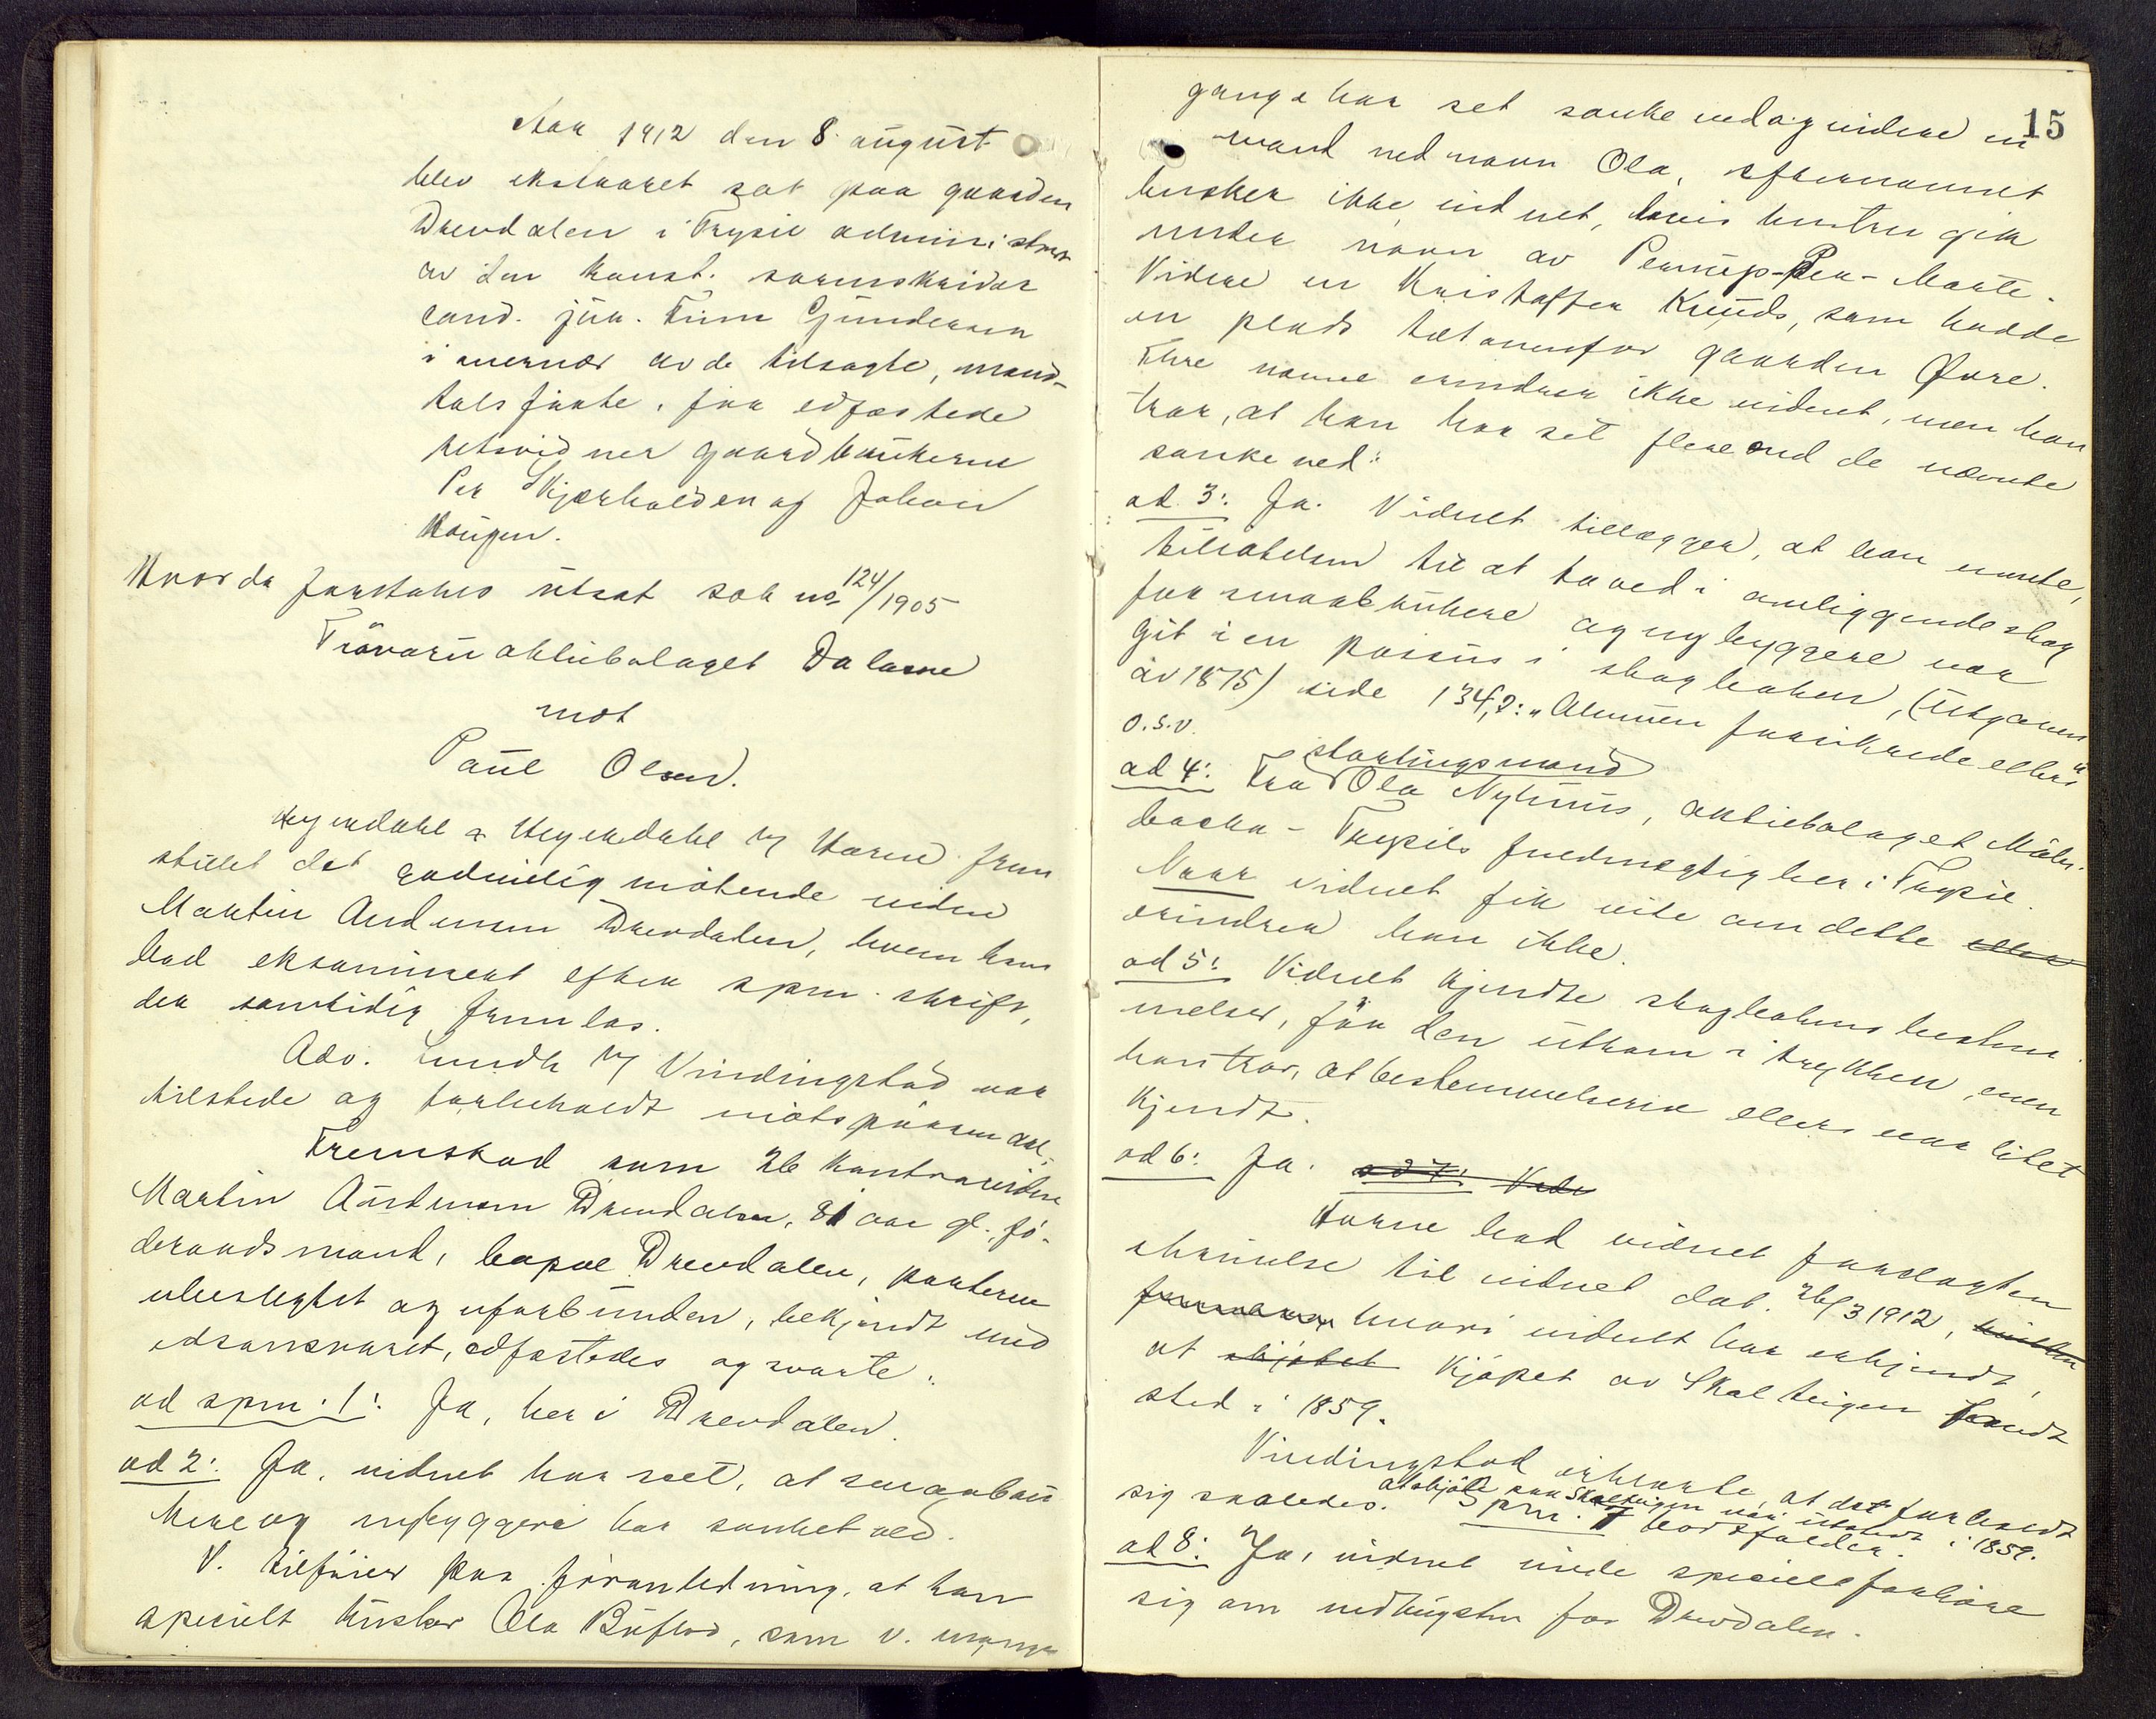 Aar 1912 den 8 august
blev ekstraret sat paa gaarden
Drevdalen i Trysil administrert
av den konst. sorenskriver
cand. jur. Finn Gundersen
i nærvær av de tilsagte, mand-
talsførte, før edfæstede
retsvidner gaardbrukerne
Per Skjærholden og Johan
Haugen.
Hvorda foretokes utsat sak no 124/1905
Trävaruaktiebolaget Dalarne
mot
Paul Olsen.
Heyerdahl & Heyerdahl v/ Harne frem
stillet det godvillig møtende vidne
Martin Andersen Drevdalen, hvem han
bad eksaminert efter spm. skrift,
der samtidig fremlas.
Adv. Lundh v/ Vindingstad var
tilstede og forbeholdt motparten alt.
Fremstod som 26 kontravidne
Martin Andersen Drevdalen, 81 aar gl., fø-
deraadsmand, bopæl Drevdalen, parterne
ubeslegtet og uforbunden, bekjendt med
edsansvaret, edfæstedes og svarte:
ad spm. 1: Ja, her i Drevdalen.
ad 2: Ja, vidnet har seet, at smaabru
kere og nybyggere har sanket ved.
V. tilføier paa foranledning, at han
specielt husker Ola Buflod, som v. mange
15
gange har set sanke ved og videre en
mand ved navn Ola, efternavnet
husker ikke vidnet, hvis hustru gik
under navn av Pernup-Per-Marte.
Videre en Kristoffer Knuds, som hadde
en plads tæt ovenfor gaarden Øvre.
Flere navne erindrer ikke vidnet, men han
tror, at han har set flere end de nævnte
sanke ved.
ad 3: Ja. Vidnet tillægger, at han mente,
tillatelsen til at ta ved i omliggende skog
for smaabrukere og nybyggere var
git i en passus i skogboken, (Utgaven
av 1875) side 134,2: "Almuen forsikrede ellers"
o.s.v.
ad 4: Fra stortingsmand Ola Nyhuus, aktiebolaget Möln-
backa-Trysils fuldmægtig her i Trysil.
Naar vidnet fik vite om dette
erindrer han ikke.
ad 5: Vidnet kjendte skogbokens bestem-
melser, før den utkom i trykken, men
han tror, at bestemmelserne ellers var litet
kjendt.
ad 6: Ja. ad 7: Vidn
Harne bad vidnet forelagt en
skrivelse til vidnet dat. 26/3 1912,
hvori vidnet har erkjendt,
at skjøtet kjøpet av Skalteigen fandt
sted i 1859.
Vindingstad erklærte, at det forholdt
sig saaledes. at skjøte paa Skalteigen var utstedt i 1859.
Spm. 7 bortfalder.
ad 8: Ja, vidnet vilde specielt forhøre
sig om vedhugsten for Drevdalen.